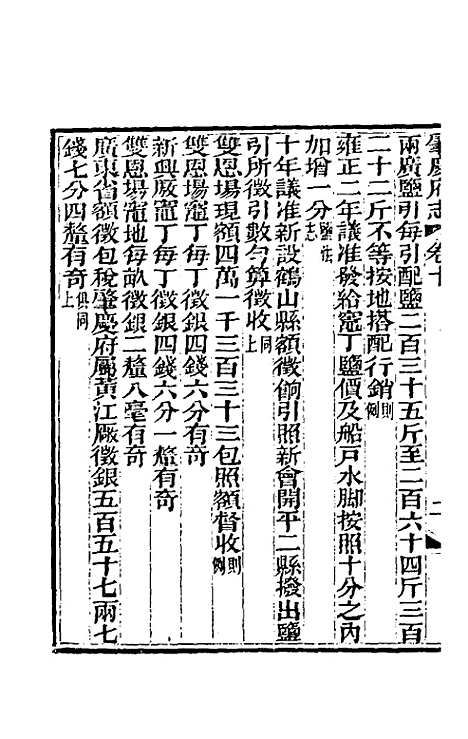 肇慶府志 卷十
兩廣鹽引每引配鹽二百三十五斤至二百六十四斤三百
二十二斤不等按地搭配行銷則例
雍正二年議准發給竈丁鹽價及船戸水脚按照十分之內
加增一分鹽法志
十年議准新設鶴山縣額徵餉引照新會開平二縣撥出鹽
引所徵引數勻算徵收同上
雙恩場現額四萬一千三百三十三包照額督收則例
雙恩場竈丁每丁徵銀四錢六分有奇
新興廠竈丁每丁徵銀四錢六分一釐有奇
雙恩場竈地每畝徵銀二釐八毫有奇
廣東省額徵包稅肇慶府屬黃江廠徵銀五百五十七兩七
錢七分四釐有奇俱同上